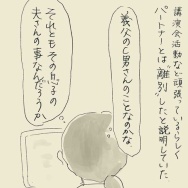 講演会活動など頑張っているらしく
パートナーとは"離別"したと説明していた
義父のC男さんのことなのかな。
それともその息子の
夫さんの事なんだろうか
の。